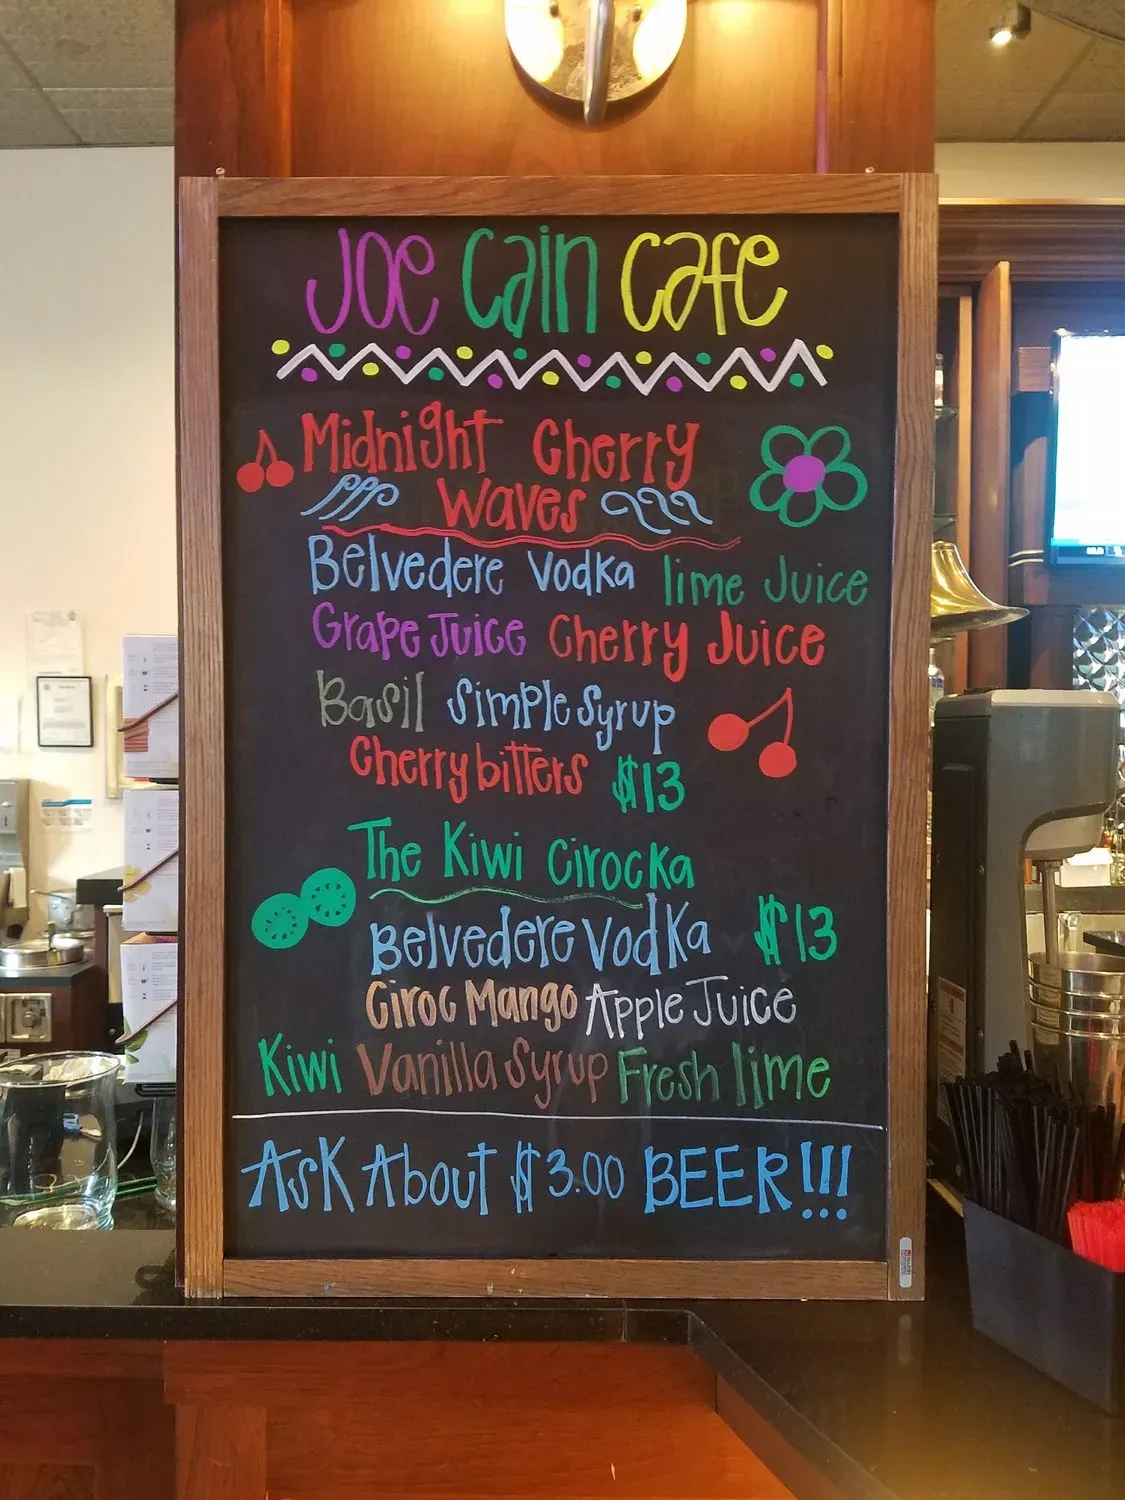 Joe Cain Cafe
Midnight Cherry
Waves
Belvedere Vodka lime Juice
Grape Juice Cherry Juice
Basil Simple Syrup
Cherry bitters $13
The Kiwi Cirocka
Belvedere Vodka $13
Ciroc Mango Apple Juice
Kiwi Vanilla Syrup Fresh lime
Ask About $3.00 BEER!!!